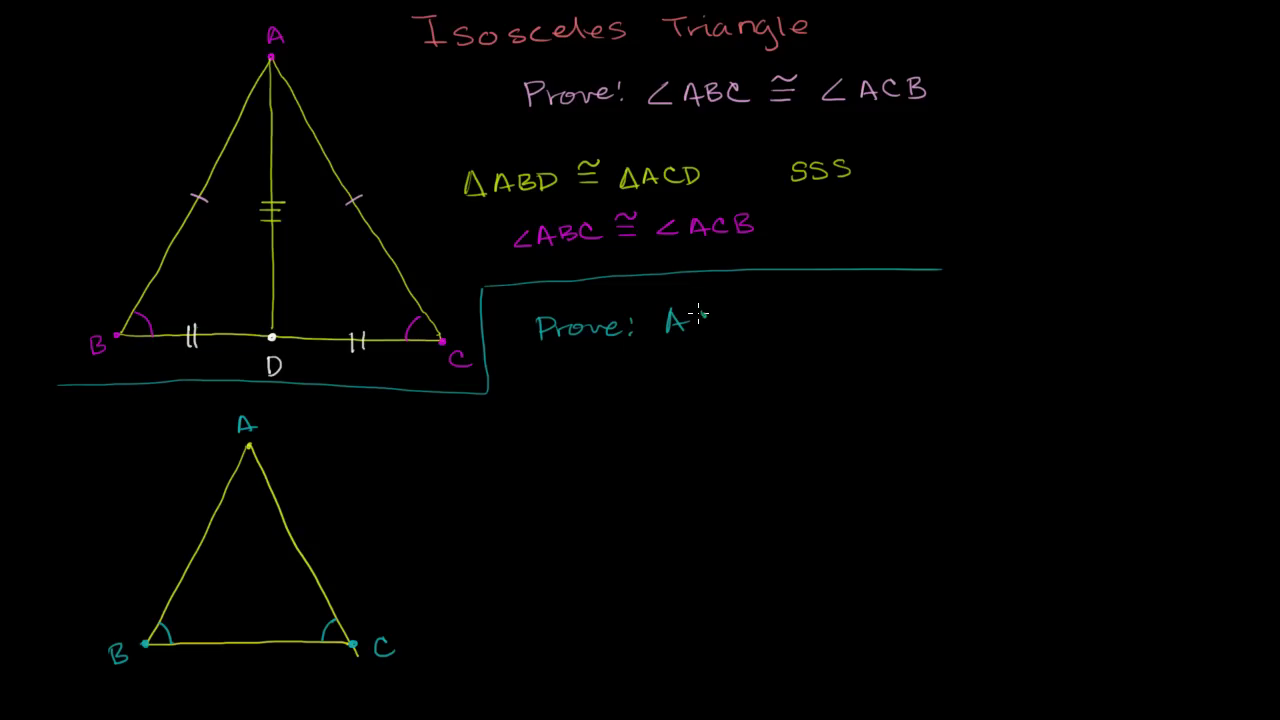 Isosceles Triangle
A
Prove: ∠ABC ≅ ∠ACB
ΔABD ≅ ΔACD SSS
∠ABC ≅ ∠ACB
B
D
C
Prove: A
A
B
C